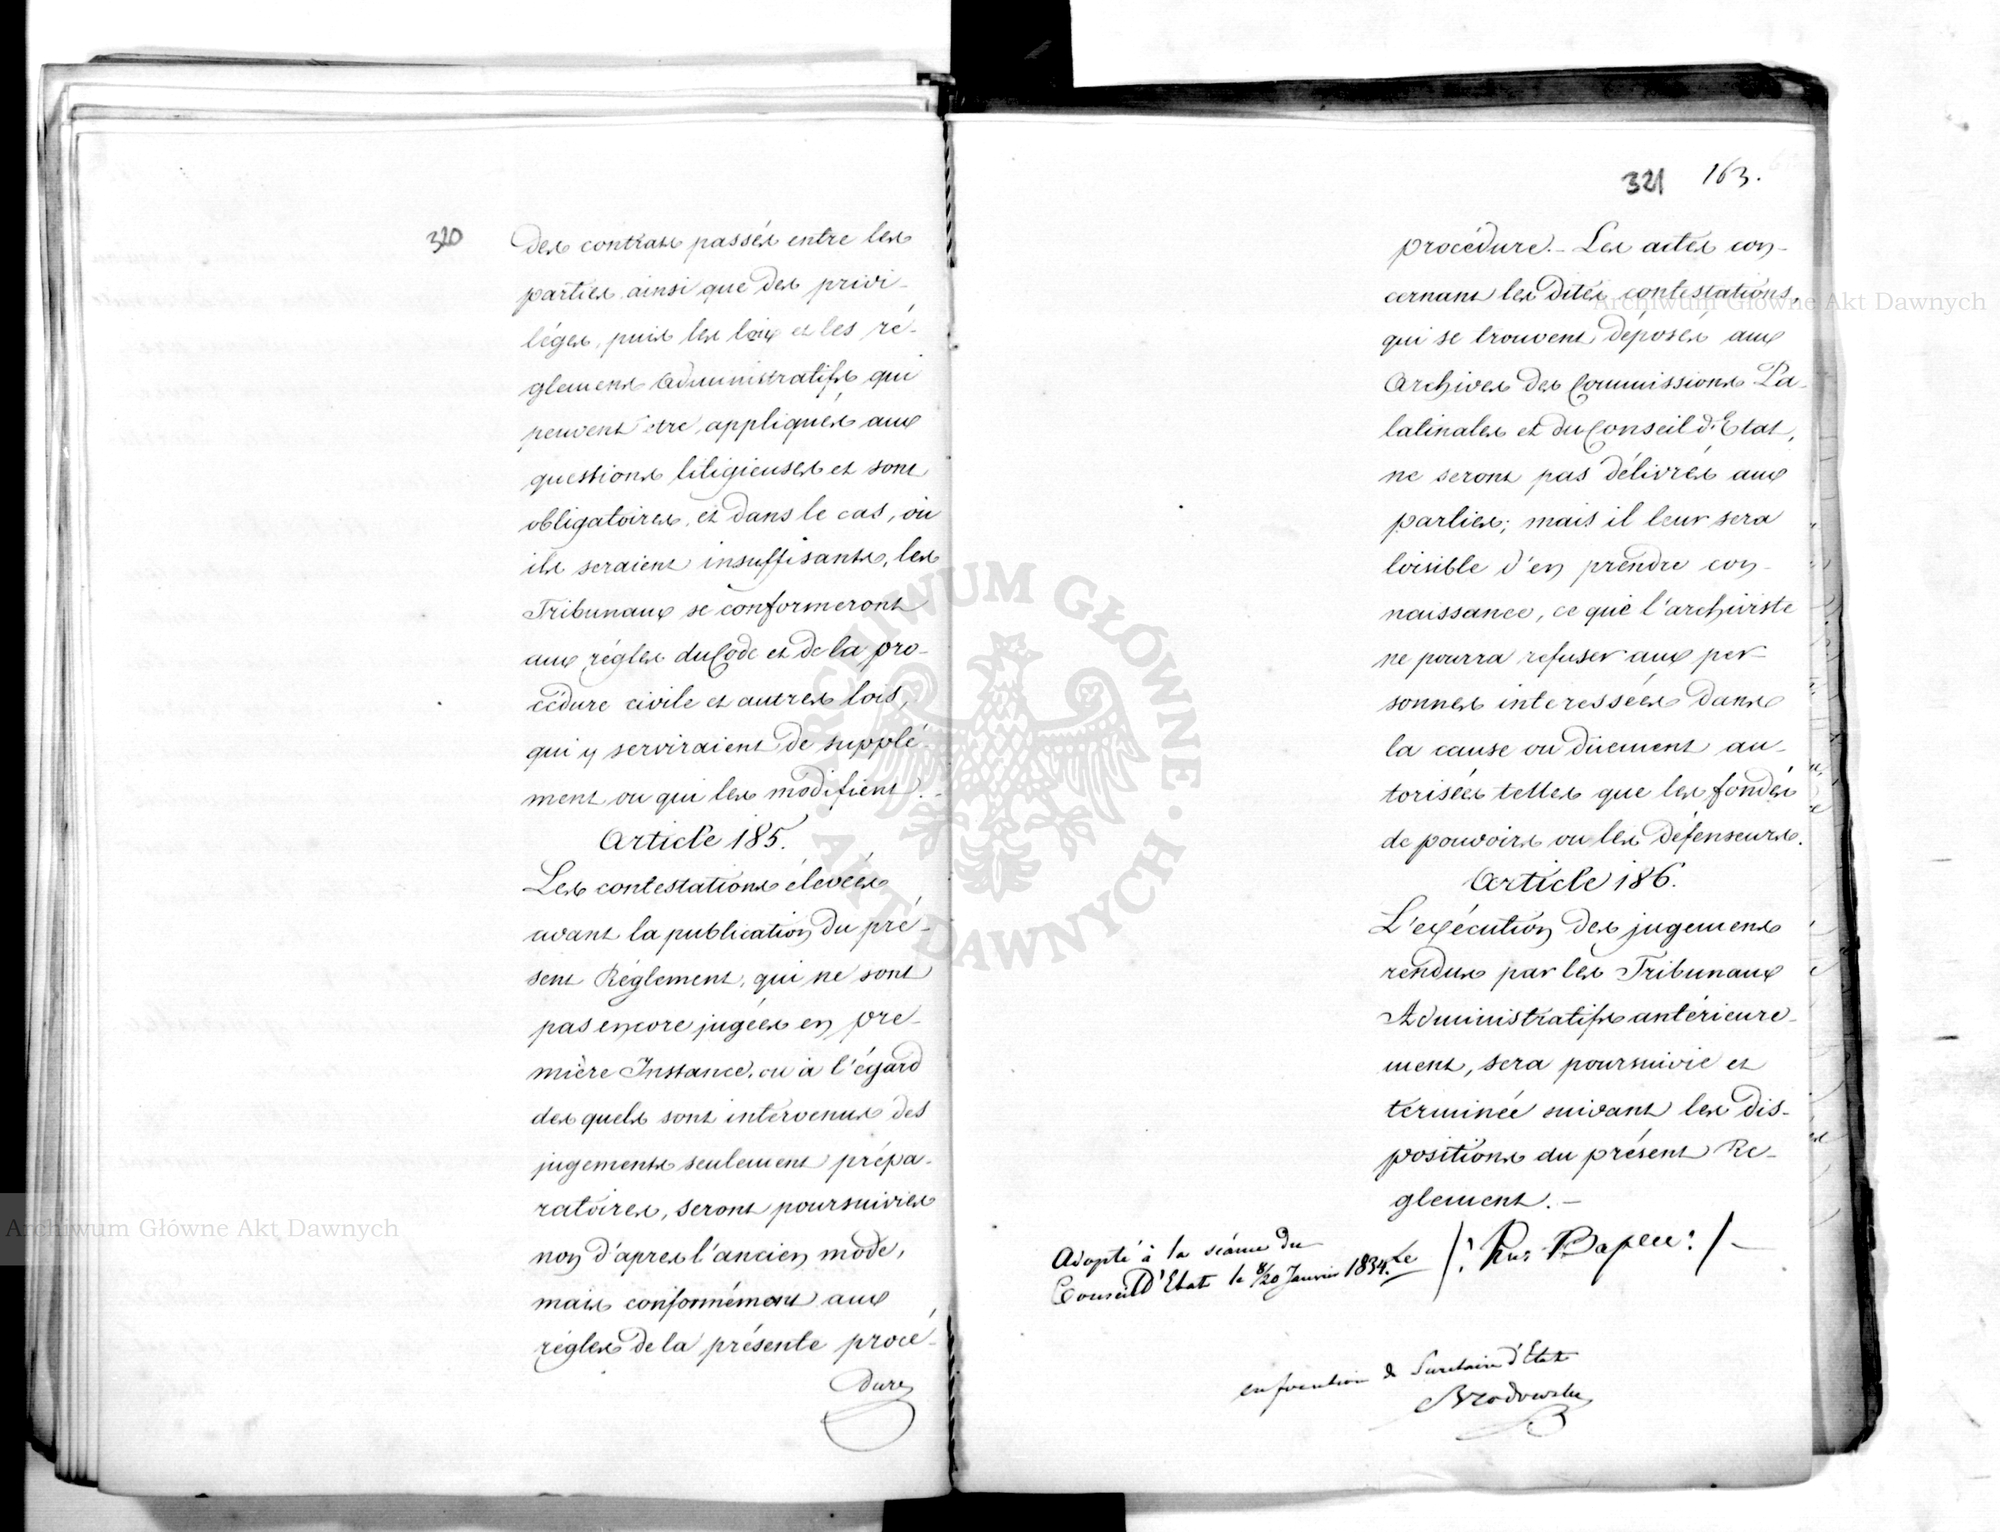 320
des contrats passés entre les
parties, ainsi que des privi-
léges, puis les loix et les ré-
glemens Administratifs qui
peuvent être appliqués aux
questions litigieuses et sont
obligatoires, et dans le cas, où
ils seraient insuffisants, les
Tribunaux se conformeront
aux régles du Code et de la pro-
cédure civile et autres lois,
qui y serviraient de supplé-
ment ou qui les modifient.
Article 185.
Les contestations élevées
avant la publication du pré-
sent Réglement, qui ne sont
pas encore jugées en pre-
mière Instance, ou à l'égard
des quels sont intervenus des
jugements seulement prépa-
ratoires, seront poursuivies
non d'apres l'ancien mode,
mais conformément aux
régles de la présente procé-
dure
321 163.
procédure.- Les actes con-
cernant les dites contestations,
qui se trouvent déposés aux
Archives des Commissions Pa-
latinales et du Conseil d'Etat,
ne seront pas délivrés aux
parties; mais il leur sera
loisible d'en prendre con-
naissance, ce que l'archiviste
ne pourra refuser aux per-
sonnes interessées dans
la cause ou dûement au-
torisées telles que les fondés
de pouvoirs ou les défenseurs.
Article 186.
L'exécution des jugemens
rendus par les Tribunaux
Administratifs antérieure-
ment, sera poursuivie et
terminée suivant les dis-
positions du présent Re-
glement.-
Adopté à la séance du
Conseil d'Etat le 8/20 Janvier 1834.
en fonction de Secretaire d'Etat
Brodowski
Archiwum Główne Akt Dawnych
Archiwum Główne Akt Dawnych
ARCHIWUM GŁÓWNE · AKT DAWNYCH ·